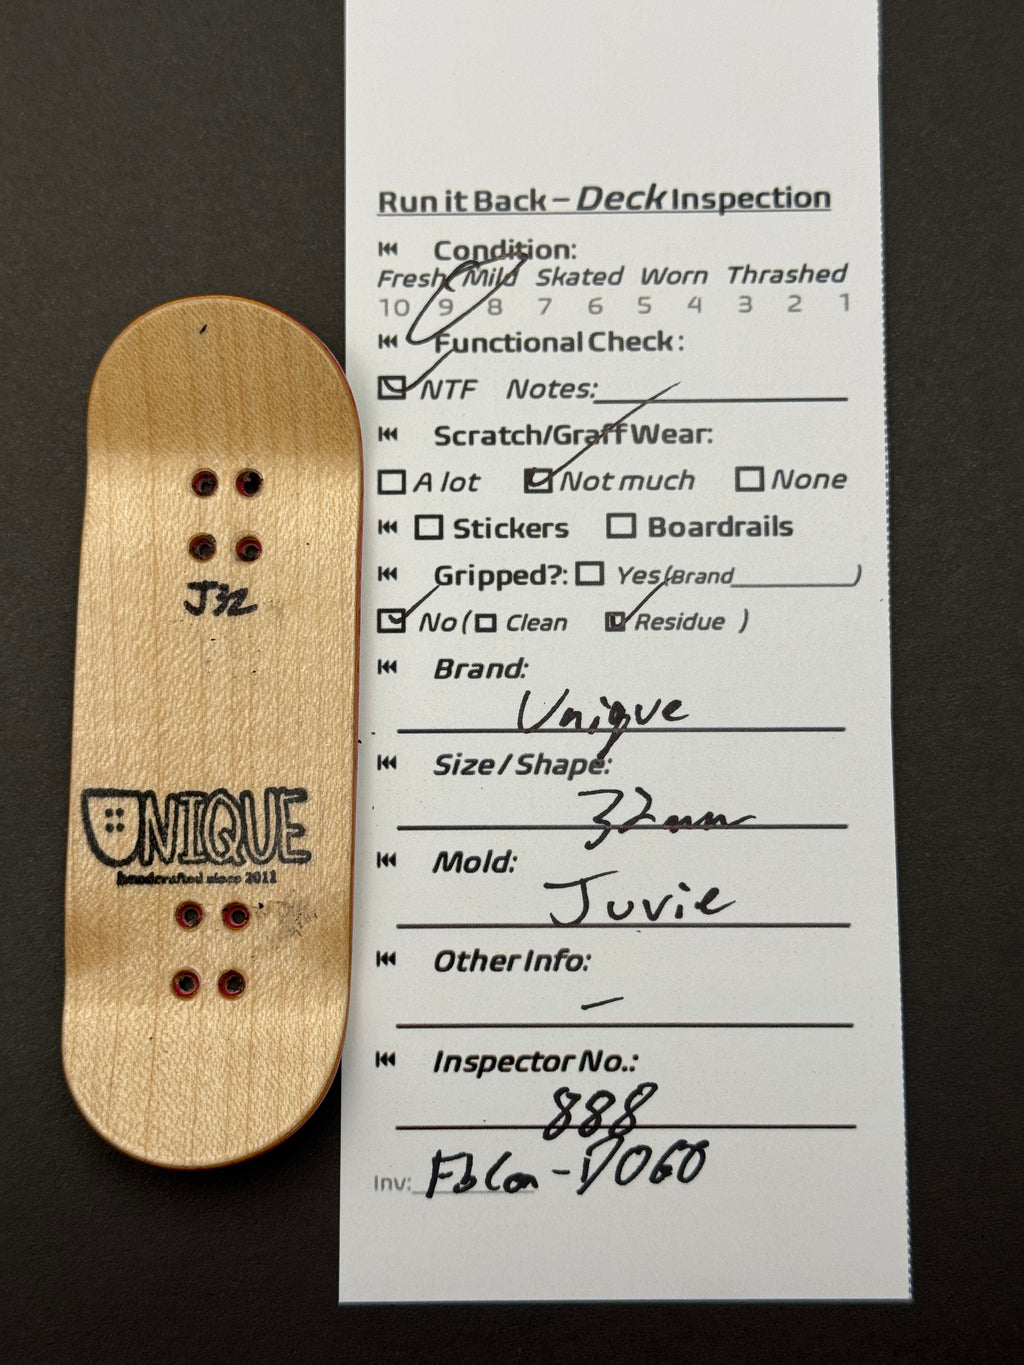 Run it Back – Deck Inspection
Condition:
Fresh Mild Skated Worn Thrashed
10 9 8 7 6 5 4 3 2 1
Functional Check:
NTF Notes:
Scratch/Graff Wear:
A lot Not much None
Stickers Boardrails
Gripped?: Yes(Brand )
No ( Clean Residue )
Brand:
Unique
Size / Shape:
32mm
Mold:
Juvie
Other Info:
—
Inspector No.:
888
Inv: FbCon-D060
J32
UNIQUE
handcrafted since 2011